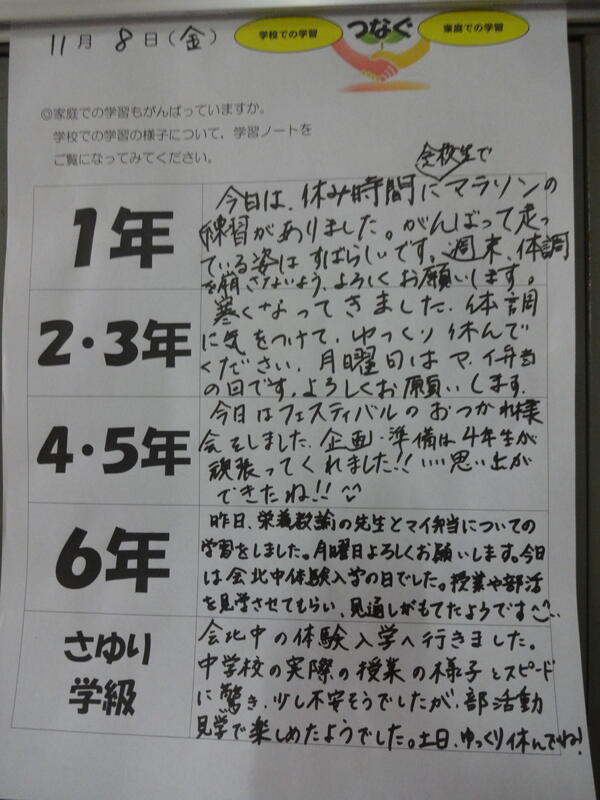 11月 8日(金)
学校での学習
つなぐ
家庭での学習
◎家庭での学習もがんばっていますか。
学校での学習の様子について、学習ノートを
ご覧になってみてください。
全校生で
1年
今日は、休み時間にマラソンの
練習がありました。がんばって走っ
ている姿はすばらしいです。週末、体調
を崩さないよう、よろしくお願いします。
2・3年
寒くなってきました。体調
に気をつけて、ゆっくり休んで
ください。月曜日はマイ弁当
の日です。よろしくお願いします。
4・5年
今日はフェスティバルのおつかれ様
会をしました。企画・準備は4年生が
頑張ってくれました!! いい思い出が
できたね!!
6年
昨日、栄養教諭の先生とマイ弁当についての
学習をしました。月曜日よろしくお願いします。今日
は会北中体験入学の日でした。授業や部活
を見学させてもらい、見通しがもてたようです
さゆり
学級
会北中の体験入学へ行きました。
中学校の実際の授業の様子とスピード
に驚き、少し不安そうでしたが、部活動
見学で楽しめたようでした。土日、ゆっくり休んでね!